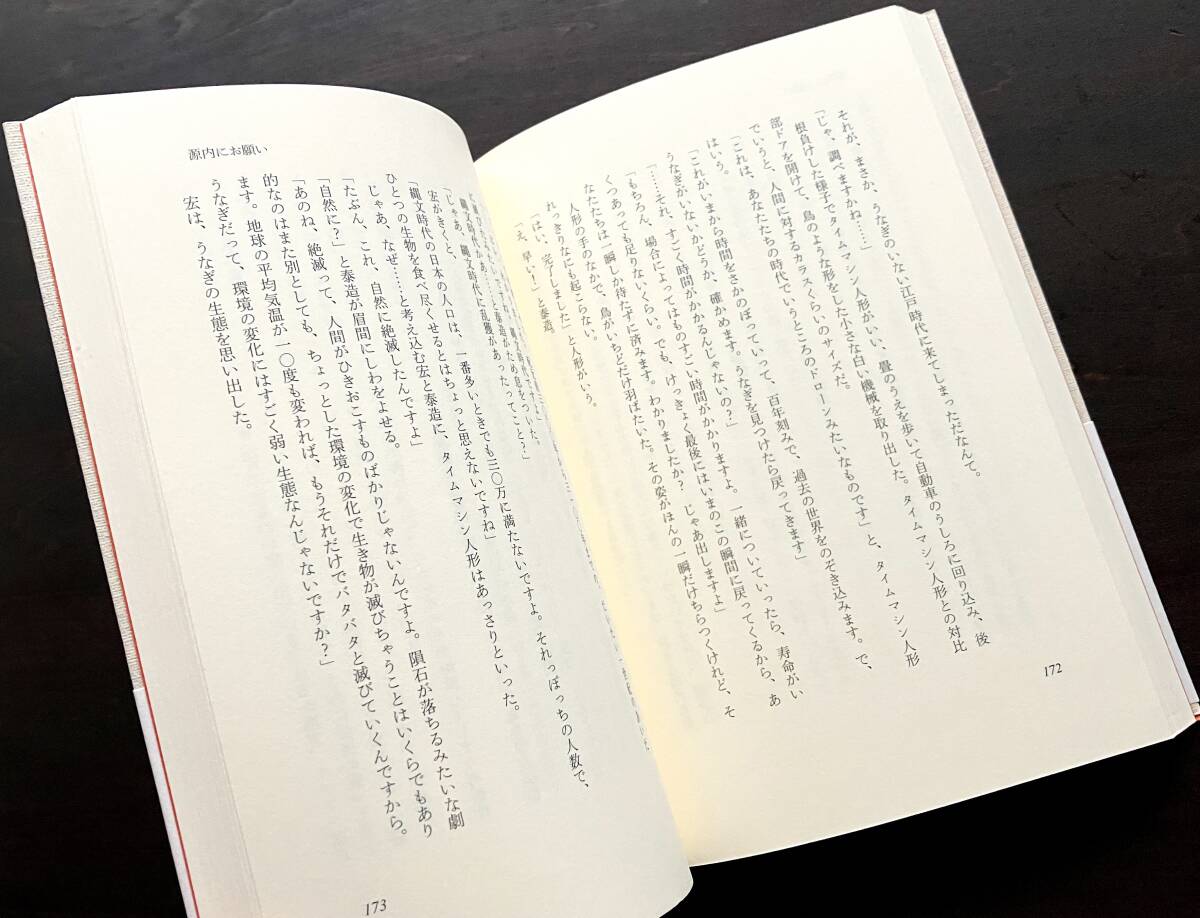 それが、まさか、うなぎのいない江戸時代に来てしまっただなんて。
「じゃ、調べますかね……」
根負けした様子でタイムマシン人形がいい、畳のうえを歩いて自動車のうしろに回り込み、後
部ドアを開けて、鳥のような形をした小さな白い機械を取り出した。タイムマシン人形との対比
でいうと、人間に対するカラスくらいのサイズだ。
「これは、あなたたちの時代でいうところのドローンみたいなものです」と、タイムマシン人形
はいう。
「これがいまから時間をさかのぼっていって、百年刻みで、過去の世界をのぞき込みます。で、
うなぎがいないかどうか、確かめます。うなぎを見つけたら戻ってきます」
「……それ、すごく時間がかかるんじゃないの？」
「もちろん、場合によってはものすごい時間がかかりますよ。一緒についていったら、寿命がい
くつあっても足りないくらい。でも、けっきょく最後にはいまのこの瞬間に戻ってくるから、あ
なたたちは一瞬しか待たずに済みます。わかりましたか？　じゃあ出しますよ」
人形の手のなかで、鳥がいちどだけ羽ばたいた。その姿がほんの一瞬だけちらつくけれど、そ
れっきりなにも起こらない。
「はい、完了しました」と人形がいう。
「え、早い！」と泰造。
172
源内にお願い
「じゃあ、縄文時代に乱獲があったってこと？」
宏がきくと、
「縄文時代の日本の人口は、一番多いときでも三〇万に満たないですよ。それっぽっちの人数で、
ひとつの生物を食べ尽くせるとはちょっと思えないですね」
じゃあ、なぜ……と考え込む宏と泰造に、タイムマシン人形はあっさりといった。
「たぶん、これ、自然に絶滅したんですよ」
「自然に？」と泰造が眉間にしわをよせる。
「あのね、絶滅って、人間がひきおこすものばかりじゃないんですよ。隕石が落ちるみたいな劇
的なのはまた別としても、ちょっとした環境の変化で生き物が滅びちゃうことはいくらでもあり
ます。地球の平均気温が一〇度も変われば、もうそれだけでバタバタと滅びていくんですから。
うなぎだって、環境の変化にはすごく弱い生態なんじゃないですか？」
宏は、うなぎの生態を思い出した。
173